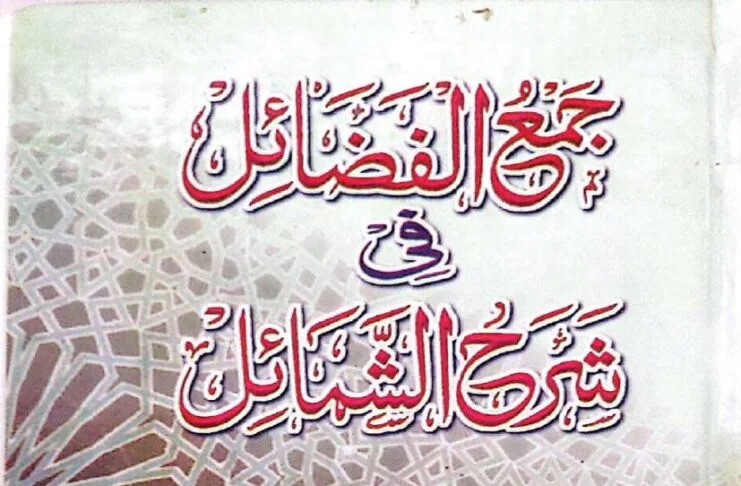 جَمْعُ الْفَضَائِلِ
فِي
شَرْحِ الشَّمَائِلِ